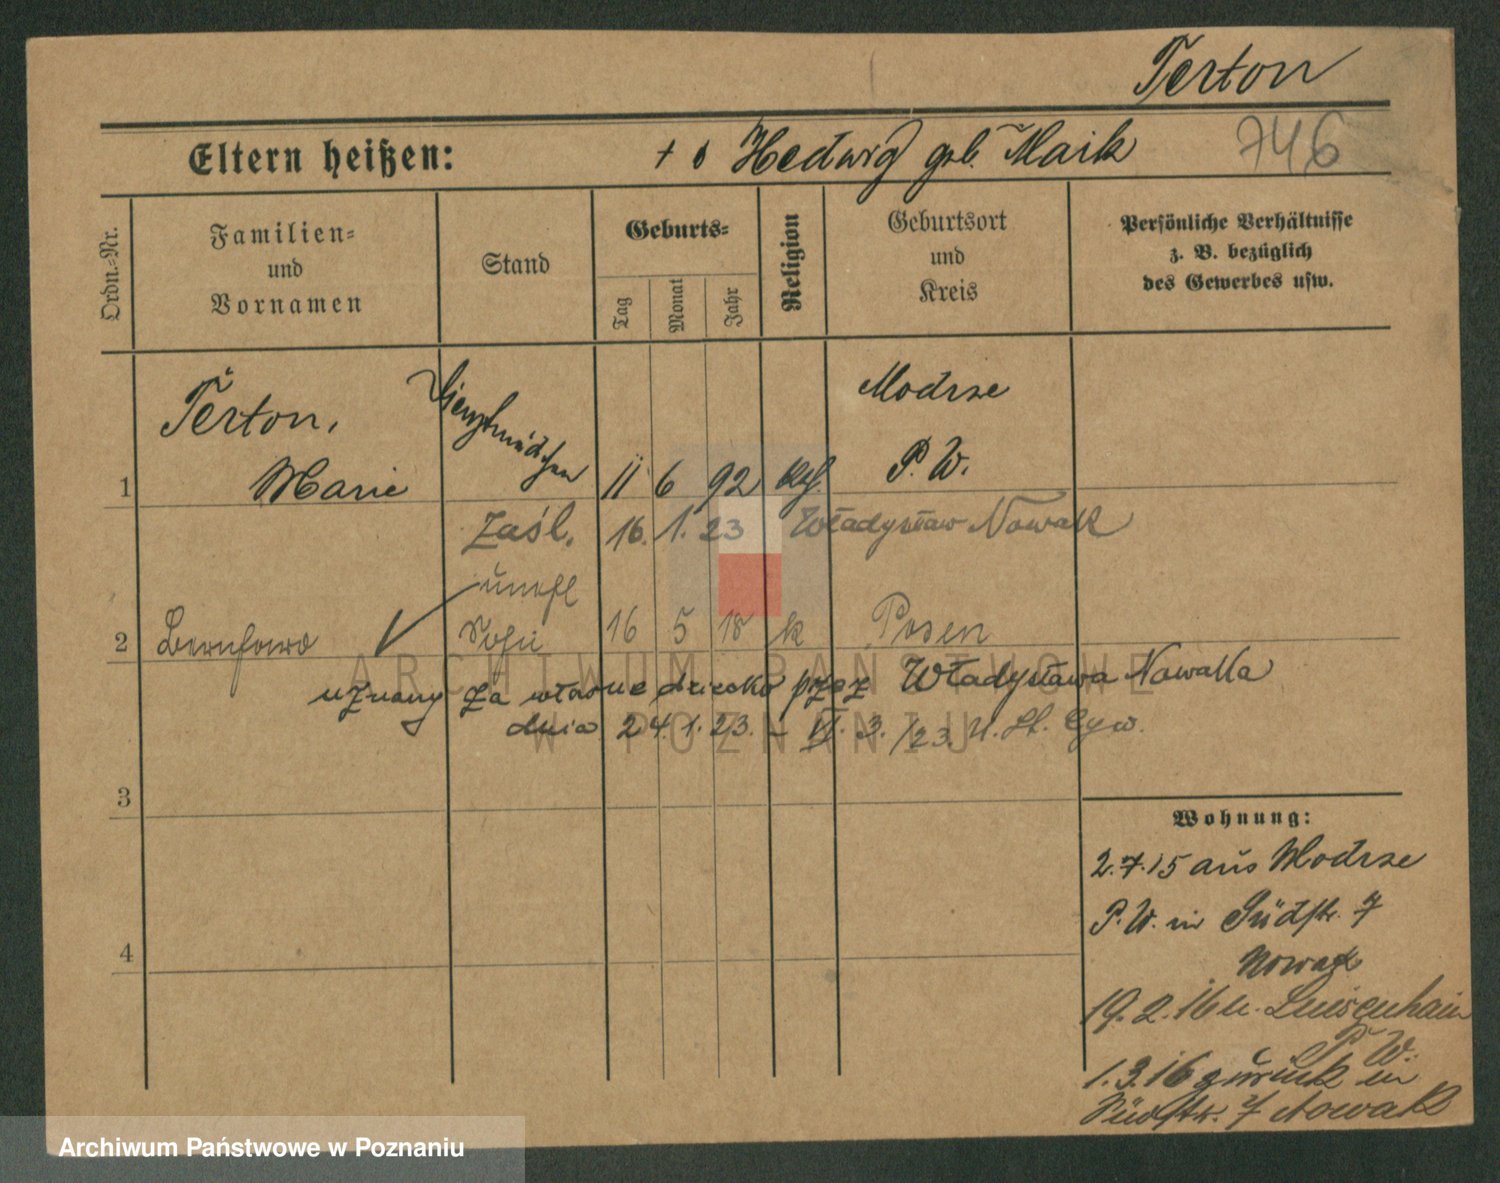 Terton
Eltern heißen: + o Hedwig geb. Maik 746
Ordn.=Nr.
Familien=
und
Vornamen
Stand
Geburts=
Tag
Monat
Jahr
Religion
Geburtsort
und
Kreis
Persönliche Verhältnisse
z. B. bezüglich
des Gewerbes usw.
1 Terton,
Marie
Dienstmädchen
11 6 92 kth.
Modrze
P. W.
Zaśl. 16. 1. 23 Władysław Nowak
unehl
2 Bernhard
Sohn
16 5 18 k Posen
uznany za własne dziecko przez Władysława Nowaka
dnia 24. 1. 23. – VI. 3. /23. U. St. Cyw.
3
4
Wohnung:
2.7.15 aus Modrze
P. W. in Südstr. 7
Nowak
19. 2. 16 n. Luisenhain
P. W.
1. 3. 16 zurück in
Südstr. 7 Nowak
ARCHIWUM PAŃSTWOWE
W POZNANIU
Archiwum Państwowe w Poznaniu